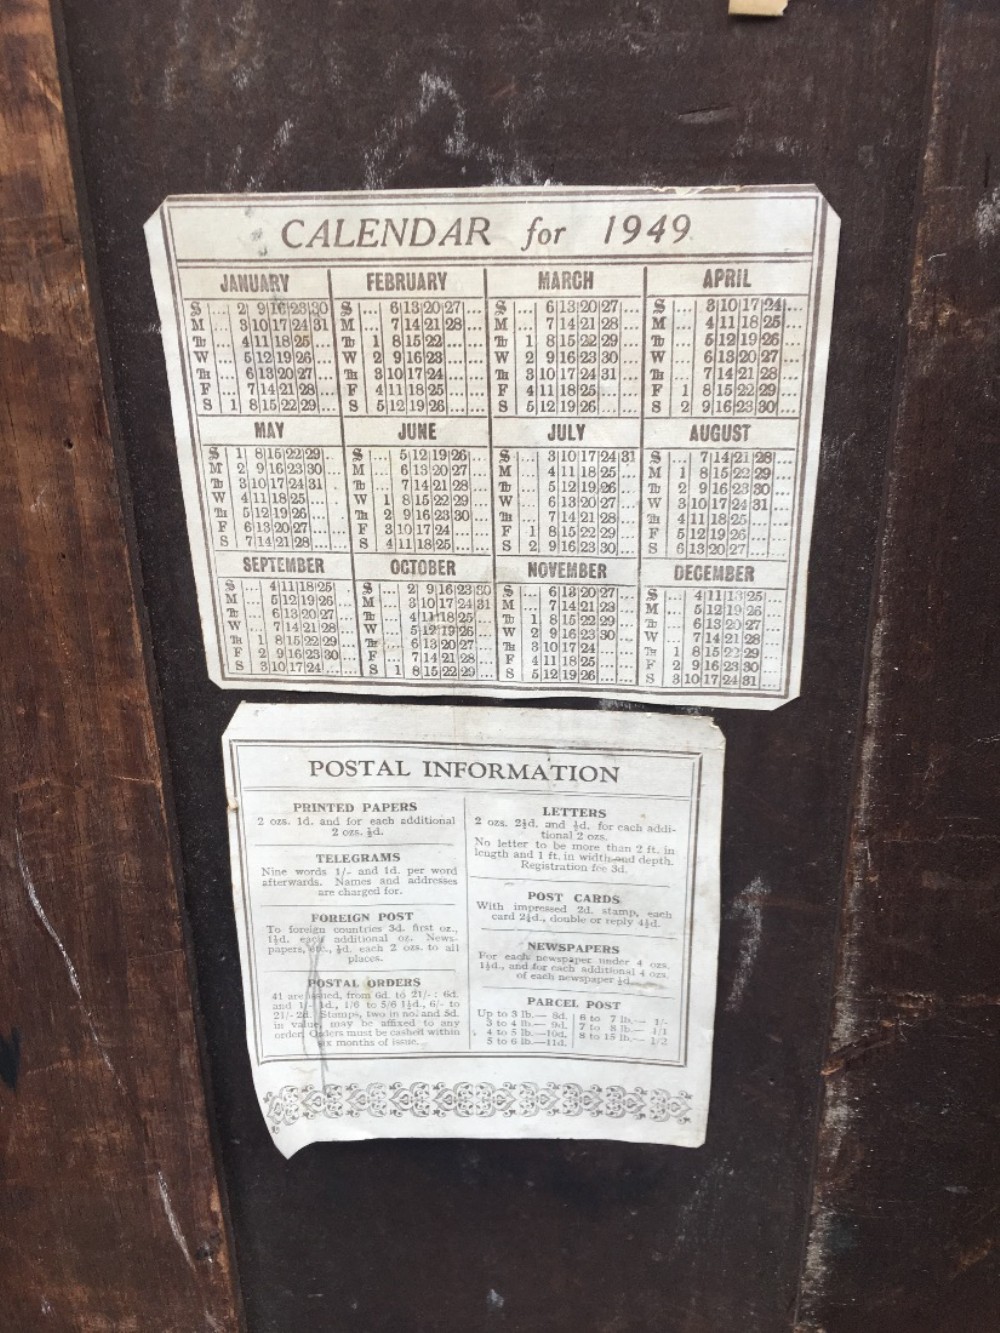 CALENDAR for 1949
JANUARY FEBRUARY MARCH APRIL
S ... 2 9 16 23 30 S ... 6 13 20 27 ... S ... 6 13 20 27 ... S ... 3 10 17 24 ...
M ... 3 10 17 24 31 M ... 7 14 21 28 ... M ... 7 14 21 28 ... M ... 4 11 18 25 ...
Tu ... 4 11 18 25 ... Tu 1 8 15 22 ... ... Tu 1 8 15 22 29 ... Tu ... 5 12 19 26 ...
W ... 5 12 19 26 ... W 2 9 16 23 ... ... W 2 9 16 23 30 ... W ... 6 13 20 27 ...
TH ... 6 13 20 27 ... TH 3 10 17 24 ... ... TH 3 10 17 24 31 ... TH ... 7 14 21 28 ...
F ... 7 14 21 28 ... F 4 11 18 25 ... ... F 4 11 18 25 ... ... F 1 8 15 22 29 ...
S 1 8 15 22 29 ... S 5 12 19 26 ... ... S 5 12 19 26 ... ... S 2 9 16 23 30 ...
MAY JUNE JULY AUGUST
S 1 8 15 22 29 ... S ... 5 12 19 26 ... S ... 3 10 17 24 31 S ... 7 14 21 28 ...
M 2 9 16 23 30 ... M ... 6 13 20 27 ... M ... 4 11 18 25 ... M 1 8 15 22 29 ...
Tu 3 10 17 24 31 ... Tu ... 7 14 21 28 ... Tu ... 5 12 19 26 ... Tu 2 9 16 23 30 ...
W 4 11 18 25 ... ... W 1 8 15 22 29 ... W ... 6 13 20 27 ... W 3 10 17 24 31 ...
TH 5 12 19 26 ... ... TH 2 9 16 23 30 ... TH ... 7 14 21 28 ... TH 4 11 18 25 ... ...
F 6 13 20 27 ... ... F 3 10 17 24 ... ... F 1 8 15 22 29 ... F 5 12 19 26 ... ...
S 7 14 21 28 ... ... S 4 11 18 25 ... ... S 2 9 16 23 30 ... S 6 13 20 27 ... ...
SEPTEMBER OCTOBER NOVEMBER DECEMBER
S ... 4 11 18 25 ... S ... 2 9 16 23 30 S ... 6 13 20 27 ... S ... 4 11 18 25 ...
M ... 5 12 19 26 ... M ... 3 10 17 24 31 M ... 7 14 21 28 ... M ... 5 12 19 26 ...
Tu ... 6 13 20 27 ... Tu ... 4 11 18 25 ... Tu 1 8 15 22 29 ... Tu ... 6 13 20 27 ...
W ... 7 14 21 28 ... W ... 5 12 19 26 ... W 2 9 16 23 30 ... W ... 7 14 21 28 ...
TH 1 8 15 22 29 ... TH ... 6 13 20 27 ... TH 3 10 17 24 ... ... TH 1 8 15 22 29 ...
F 2 9 16 23 30 ... F ... 7 14 21 28 ... F 4 11 18 25 ... ... F 2 9 16 23 30 ...
S 3 10 17 24 ... ... S 1 8 15 22 29 ... S 5 12 19 26 ... ... S 3 10 17 24 31 ...
POSTAL INFORMATION
PRINTED PAPERS
2 ozs. 1d. and for each additional
2 ozs. ½d.
TELEGRAMS
Nine words 1/- and 1d. per word
afterwards. Names and addresses
are charged for.
FOREIGN POST
To foreign countries 3d. first oz.,
1½d. each additional oz. News-
papers, etc., ½d. each 2 ozs. to all
places.
POSTAL ORDERS
41 are issued, from 6d. to 21/-: 6d.
and 1/- 1d., 1/6 to 5/6 1½d., 6/- to
21/- 2d. Stamps, two in no. and 5d.
in value, may be affixed to any
order. Orders must be cashed within
six months of issue.
LETTERS
2 ozs. 2½d. and ½d. for each addi-
tional 2 ozs.
No letter to be more than 2 ft. in
length and 1 ft. in width and depth.
Registration fee 3d.
POST CARDS
With impressed 2d. stamp, each
card 2¼d., double or reply 4½d.
NEWSPAPERS
For each newspaper under 4 ozs.
1½d., and for each additional 4 ozs.
of each newspaper ½d.
PARCEL POST
Up to 3 lb.— 8d. 6 to 7 lb.— 1/-
3 to 4 lb.— 9d. 7 to 8 lb.— 1/1
4 to 5 lb.—10d. 8 to 15 lb.— 1/2
5 to 6 lb.—11d.